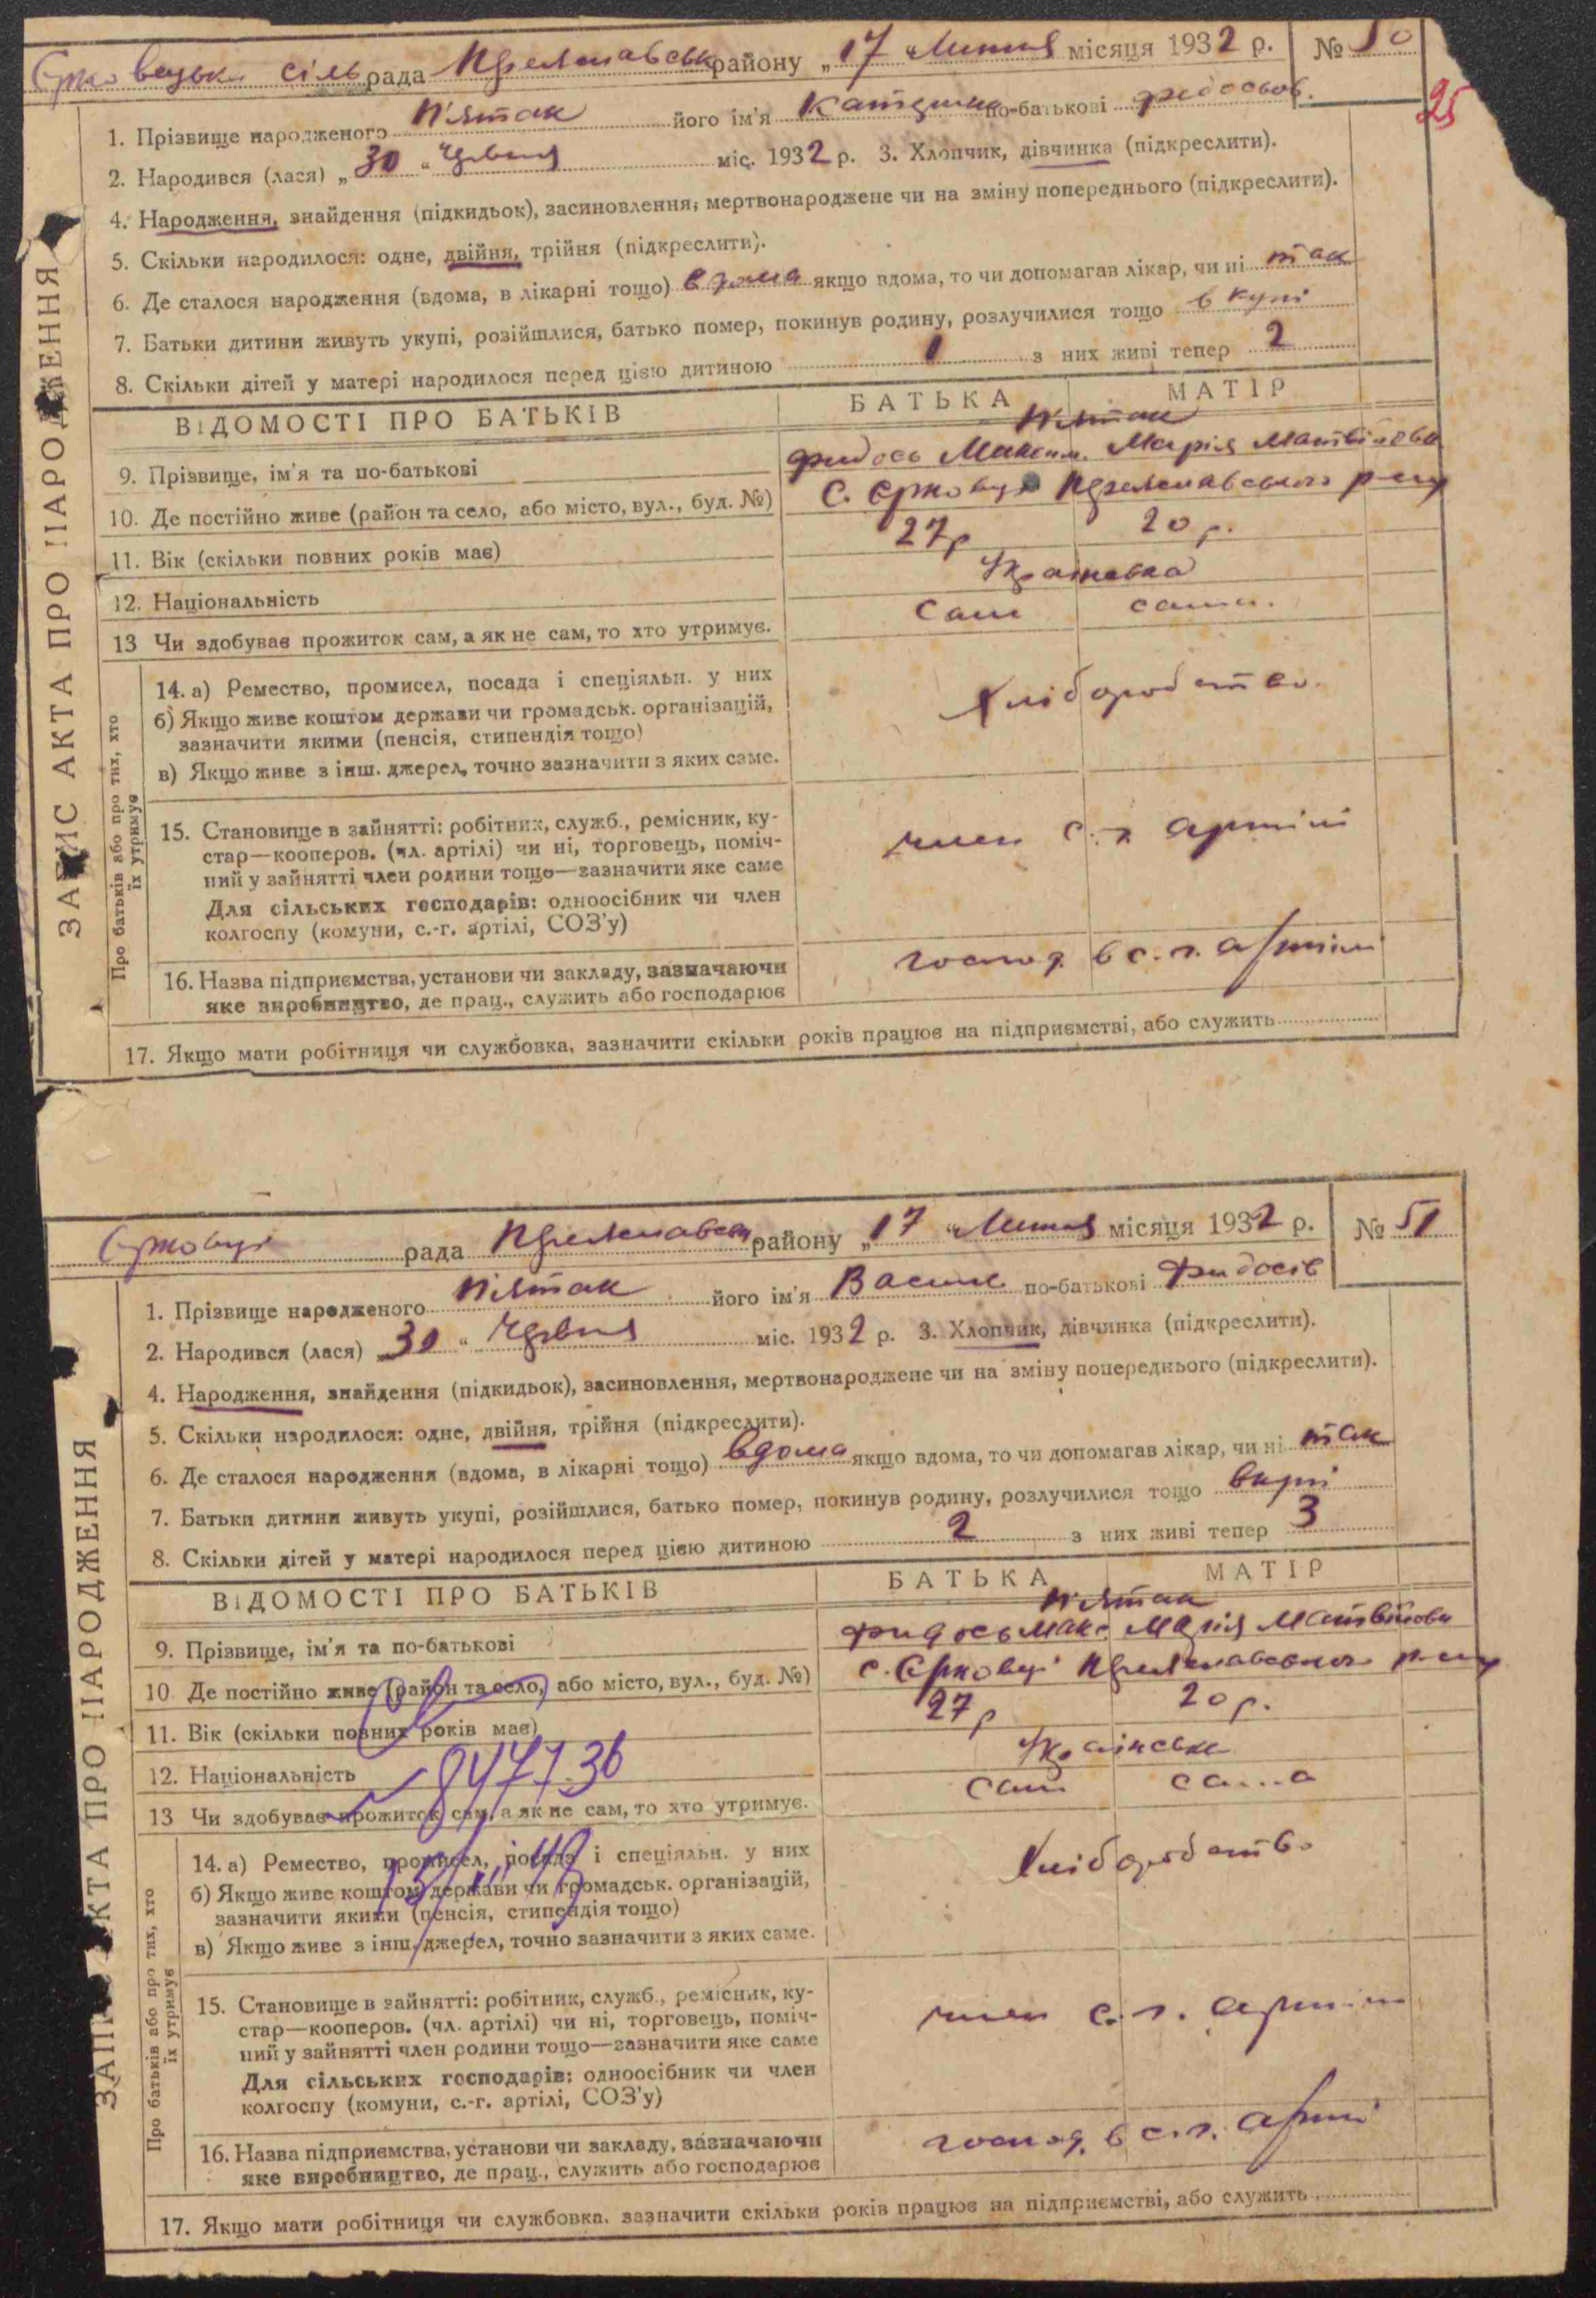 Єрковецька сільрада Переяславськ району „17 " Липня місяця 1932 р. № 50
25
1. Прізвище народженого П'ятак його ім'я Катерина по-батькові Федосьов.
2. Народився (лася) „30 " Червня міс. 1932 р. 3. Хлопчик, дівчинка (підкреслити).
4. Народження, знайдення (підкидьок), засиновлення, мертвонароджене чи на зміну попереднього (підкреслити).
5. Скільки народилося: одне, двійня, трійня (підкреслити).
6. Де сталося народження (вдома, в лікарні тощо) вдома якщо вдома, то чи допомагав лікар, чи ні так
7. Батьки дитини живуть укупі, розійшлися, батько помер, покинув родину, розлучилися тощо вкупі
8. Скільки дітей у матері народилося перед цією дитиною 1 з них живі тепер 2
ВІДОМОСТІ ПРО БАТЬКІВ БАТЬКА МАТІР
П'ятак
9. Прізвище, ім'я та по-батькові Федось Максим. Марія Матвійовна
10. Де постійно живе (район та село, або місто, вул., буд. №) с. Єрковці Переяславського р-ну
11. Вік (скільки повних років має) 27 р 20 р.
12. Національність Українська
13 Чи здобуває прожиток сам, а як не сам, то хто утримує. Сам сама.
14. а) Ремество, промисел, посада і спеціяльн. у них Хліборобство.
б) Якщо живе коштом держави чи громадськ. організацій,
зазначити якими (пенсія, стипендія тощо)
в) Якщо живе з інш. джерел, точно зазначити з яких саме.
15. Становище в зайнятті: робітник, служб., ремісник, ку-
стар—кооперов. (чл. артілі) чи ні, торговець, поміч- член с. г. артілі
ний у зайнятті член родини тощо—зазначити яке саме
Для сільських господарів: одноосібник чи член
колгоспу (комуни, с.-г. артілі, СОЗ'у)
16. Назва підприємства, установи чи закладу, зазначаючи господ. в с. г. артілі
яке виробництво, де прац., служить або господарює
17. Якщо мати робітниця чи службовка, зазначити скільки років працює на підприємстві, або служить
ЗАПИС АКТА ПРО НАРОДЖЕННЯ
Про батьків або про тих, хто
їх утримує
Єрковці рада Переяславськ району „17 " Липня місяця 1932 р. № 51
1. Прізвище народженого П'ятак його ім'я Василь по-батькові Федосів
2. Народився (лася) „30 " Червня міс. 1932 р. 3. Хлопчик, дівчинка (підкреслити).
4. Народження, знайдення (підкидьок), засиновлення, мертвонароджене чи на зміну попереднього (підкреслити).
5. Скільки народилося: одне, двійня, трійня (підкреслити).
6. Де сталося народження (вдома, в лікарні тощо) вдома якщо вдома, то чи допомагав лікар, чи ні так
7. Батьки дитини живуть укупі, розійшлися, батько помер, покинув родину, розлучилися тощо вкупі
8. Скільки дітей у матері народилося перед цією дитиною 2 з них живі тепер 3
ВІДОМОСТІ ПРО БАТЬКІВ БАТЬКА МАТІР
П'ятак
9. Прізвище, ім'я та по-батькові Федось Макс. Марія Матвійовн
10. Де постійно живе (район та село, або місто, вул., буд. №) с. Єрковці Переяславського р-ну
11. Вік (скільки повних років має) 27 р 20 р.
12. Національність Українська
13 Чи здобуває прожиток сам, а як не сам, то хто утримує. Сам сама
14. а) Ремество, промисел, посада і спеціяльн. у них Хліборобство
б) Якщо живе коштом держави чи громадськ. організацій,
зазначити якими (пенсія, стипендія тощо)
в) Якщо живе з інш. джерел, точно зазначити з яких саме.
15. Становище в зайнятті: робітник, служб., ремісник, ку-
стар—кооперов. (чл. артілі) чи ні, торговець, поміч- член с. г. артілі
ний у зайнятті член родини тощо—зазначити яке саме
Для сільських господарів: одноосібник чи член
колгоспу (комуни, с.-г. артілі, СОЗ'у)
16. Назва підприємства, установи чи закладу, зазначаючи господ. в с. г. артілі
яке виробництво, де прац., служить або господарює
17. Якщо мати робітниця чи службовка, зазначити скільки років працює на підприємстві, або служить
ЗАПИС АКТА ПРО НАРОДЖЕННЯ
Про батьків або про тих, хто
їх утримує